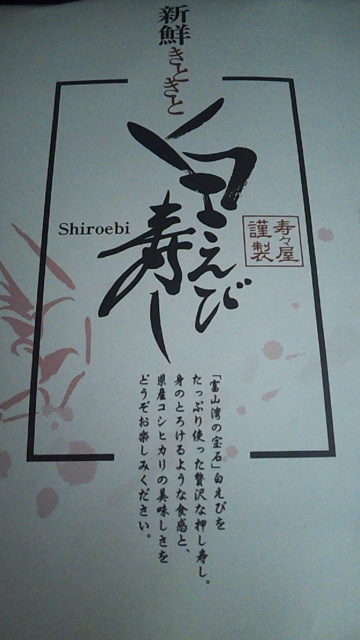 新鮮きときと
白えび
寿し
Shiroebi
寿々屋
謹製
「富山湾の宝石」白えびを
たっぷり使った贅沢な押し寿し。
身のとろけるような食感と、
県産コシヒカリの美味しさを
どうぞお楽しみください。